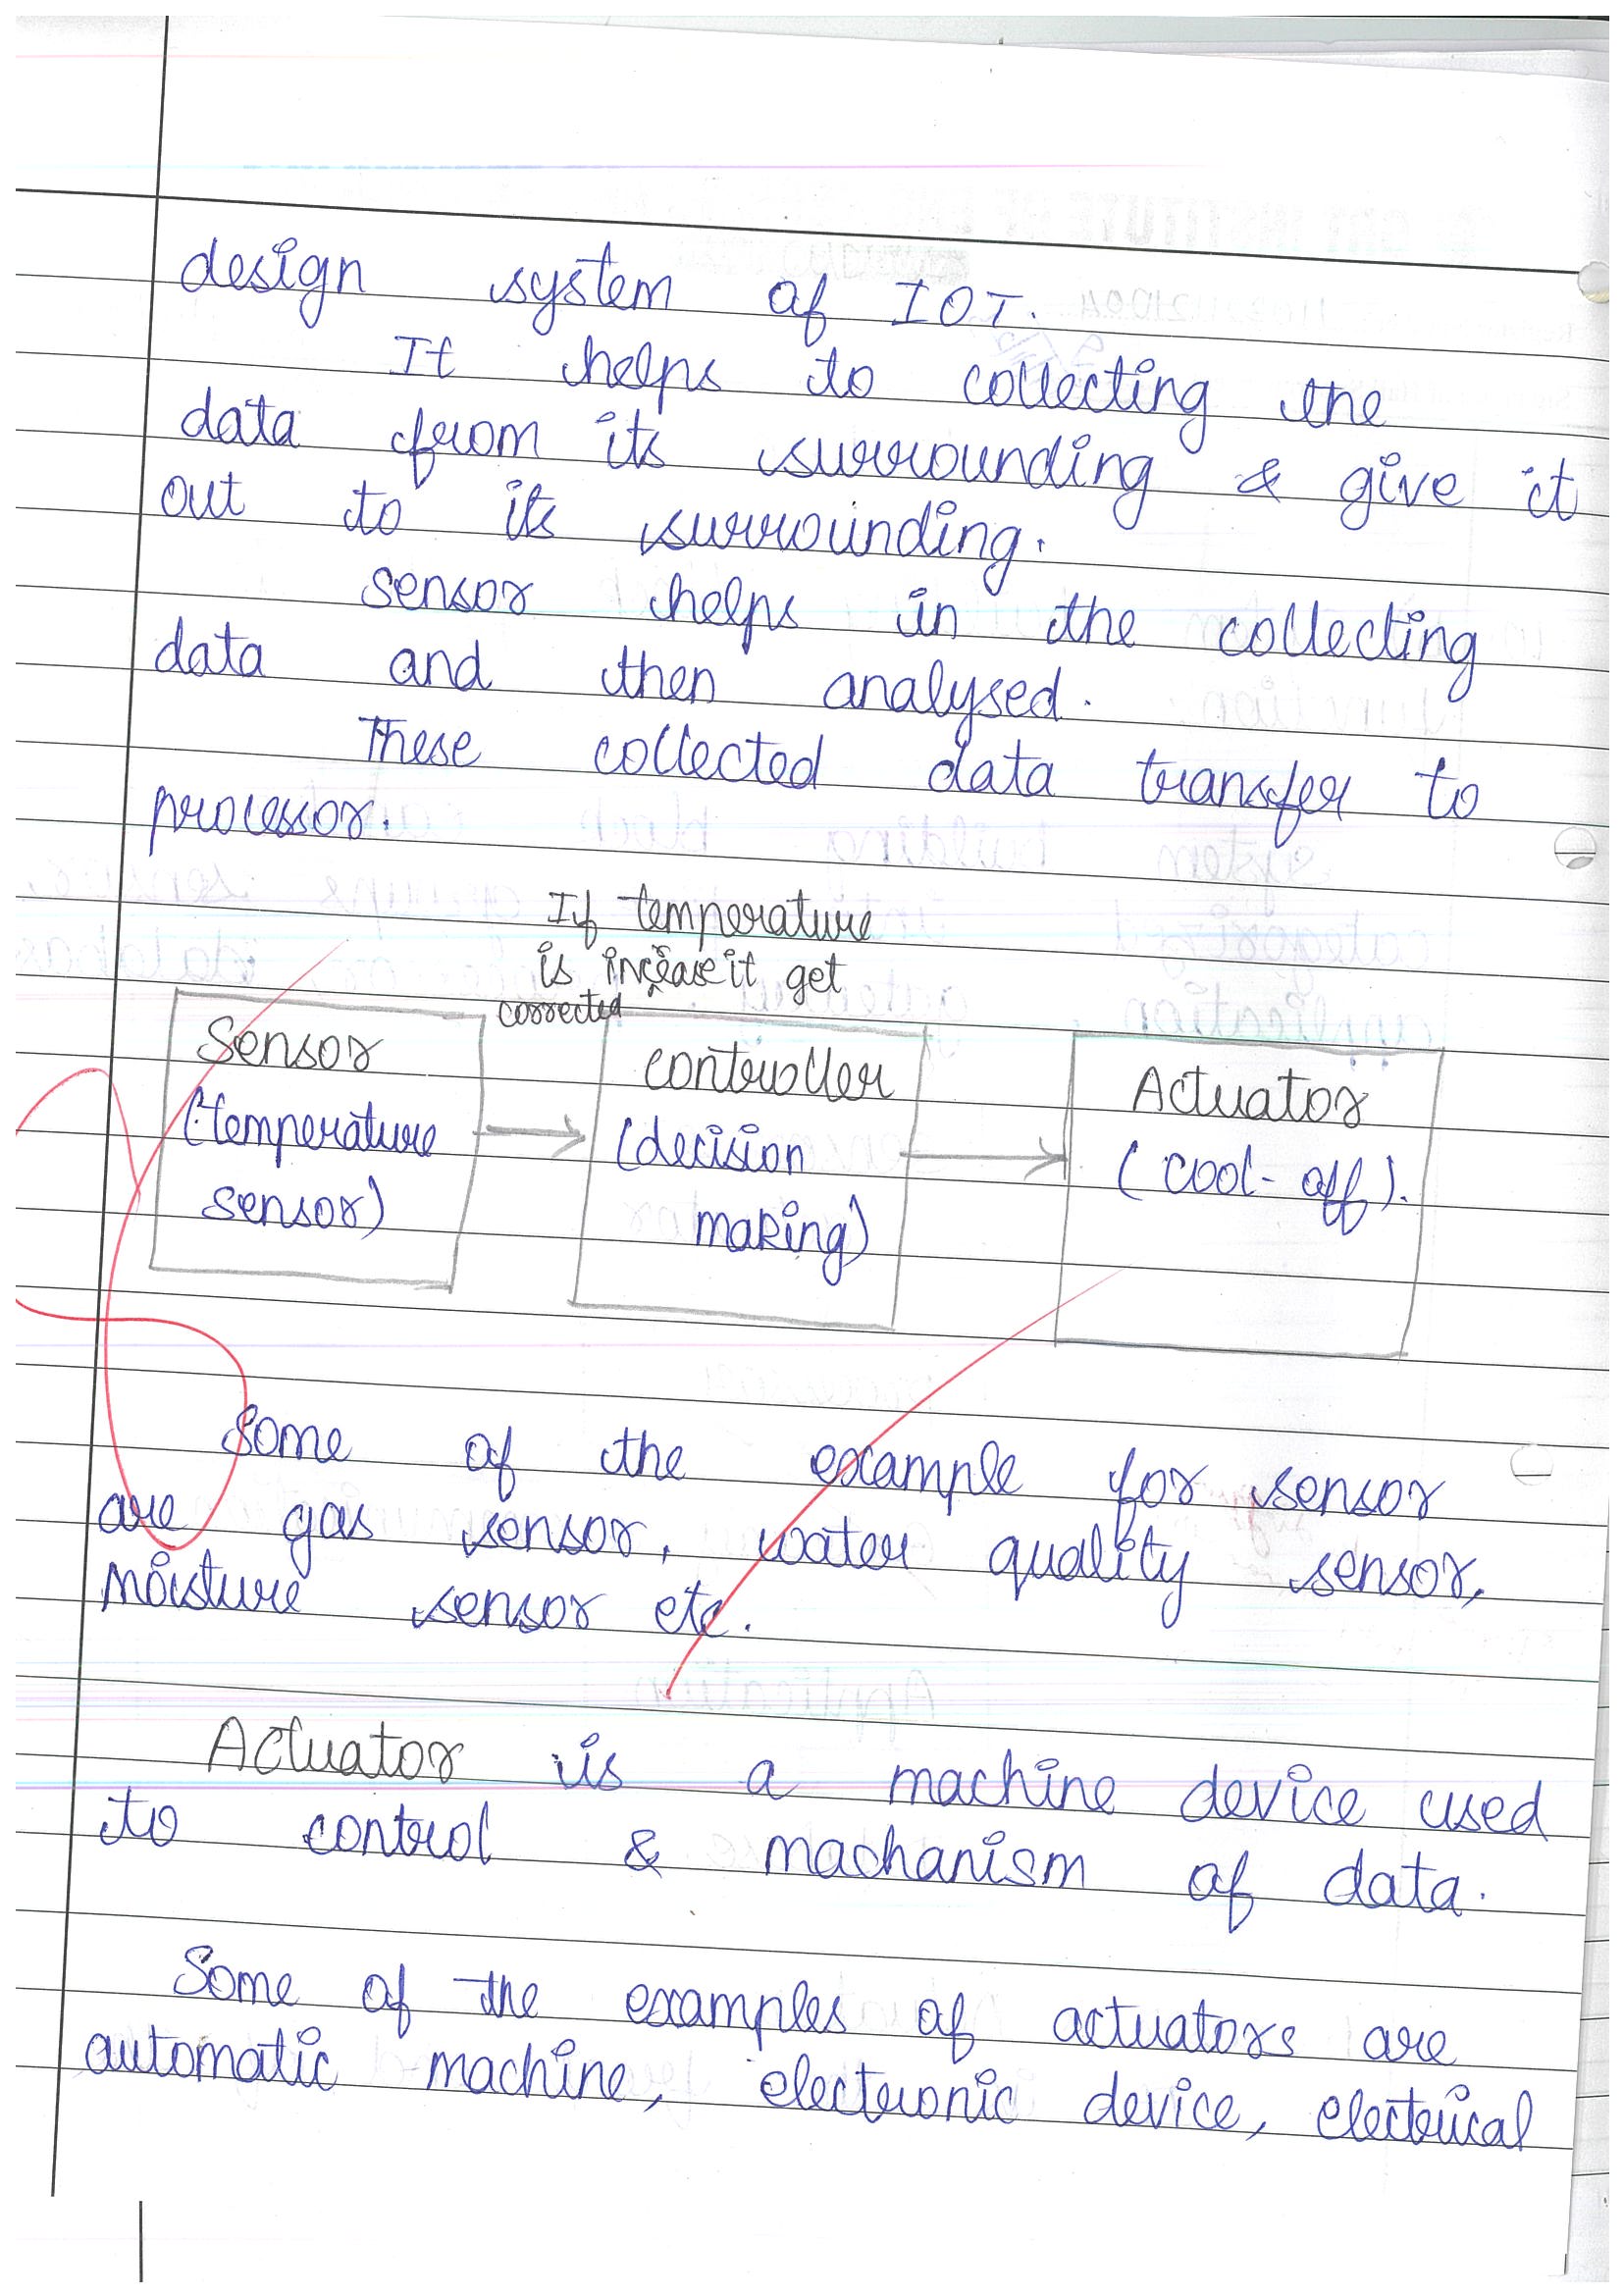 design system of IOT.
It helps to collecting the
data from its surrounding & give it
out to its surrounding.
Sensor helps in the collecting
data and then analysed.
These collected data transfer to
processor.
If temperature
is increase it get
corrected
Sensor
(temperature
sensor)
controller
(decision
making)
Actuator
(cool-off).
Some of the example for sensor
are gas sensor, water quality sensor,
moisture sensor etc.
Actuator is a machine device used
to control & machanism of data.
Some of the examples of actuators are
automatic machine, electronic device, electrical